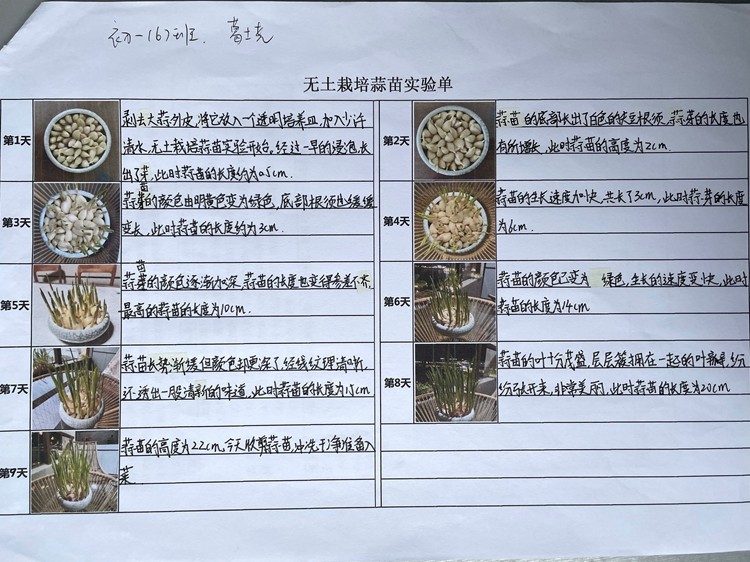 初一(6)班. 葛士尧
无土栽培蒜苗实验单
第1天
剥去大蒜外皮,将它放入一个透明培养皿,加入少许
清水,无土栽培蒜苗实验开始,经过一早的浸泡,长
出了芽,此时蒜苗的长度约为0.5cm.
第2天
蒜苗的底部长出了白色的铁豆根须,蒜芽的长度也
有所增长,此时蒜苗的高度为2cm.
第3天
蒜苗的颜色由明黄色变为绿色,底部根须也缓缓
变长,此时蒜苗的长度约为3cm.
第4天
蒜苗的生长速度加快,共长了3cm,此时蒜芽的长度
为6cm.
第5天
蒜苗的颜色逐渐加深,蒜苗的长度也变得参差不齐,
最高的蒜苗的长度为10cm.
第6天
蒜苗的颜色已变为 绿色,生长的速度变快,此时
蒜苗的长度为14cm
第7天
蒜苗长势渐缓但颜色却更深了,经线纹理清晰,
还透出一股清新的味道,此时蒜苗的长度为15cm
第8天
蒜苗的叶十分茂盛,层层簇拥在一起的叶瓣,纷
纷张开来,非常美丽,此时蒜苗的长度为20cm
第9天
蒜苗的高度为22cm,今天收剪蒜苗,冲洗干净准备入
菜.